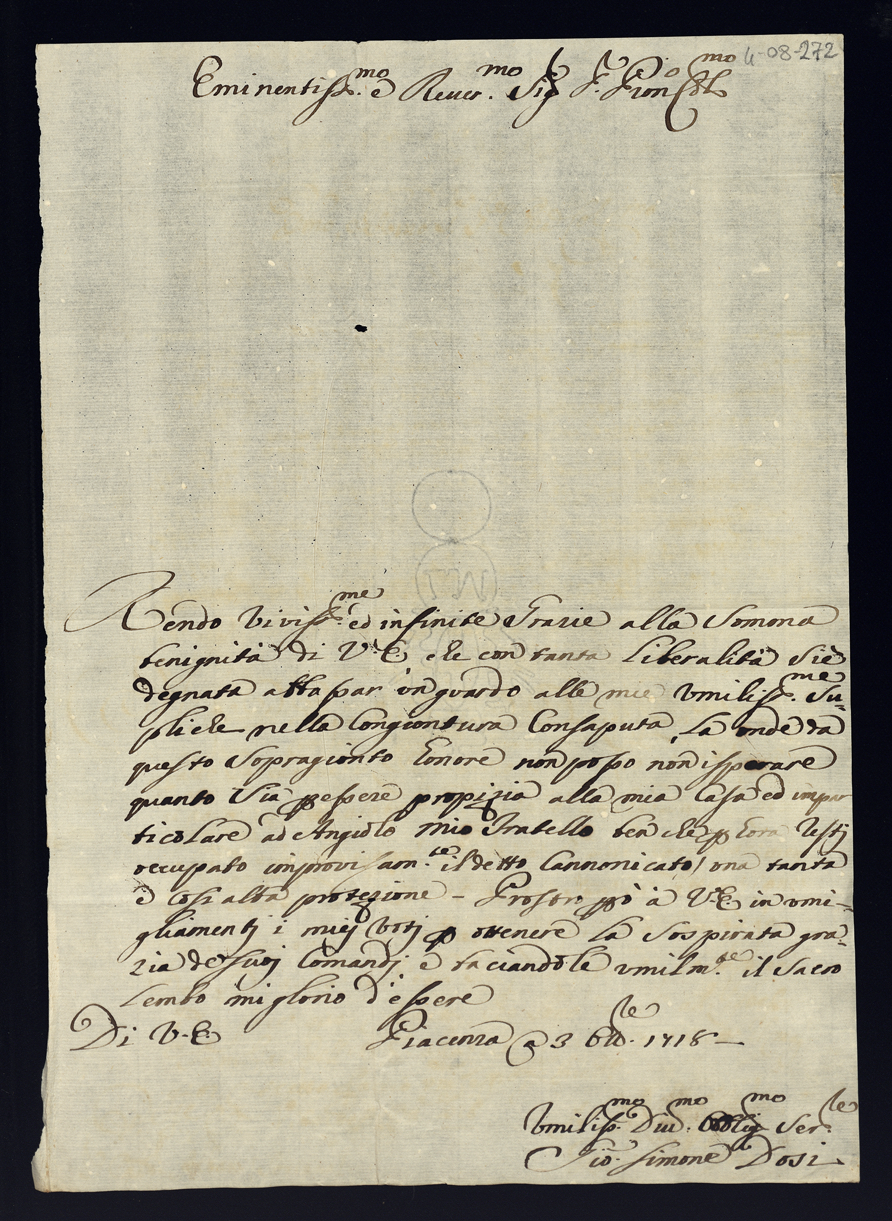 4-08-272
Eminentiss.mo e Reuer.mo Sig.r
Rendo viviss.me ed infinite Grazie alla Somona
benignità di V.E. che con tanta liberalità Siè
degnata abbassar un guardo alle mie vmiliss.me Su-
pliche nella Congiontura Consaputa, La onde da
questo Sopragionto Honore non posso non isperare
quanto Sia p essere propizia alla mia Casa ed impar
ticolare ad Angiolo mio Fratello ben che p hora resti
occupato improvisam.te il detto Cannonicato / una tanta
è cosi alta protezione - Prostro però à V.E. in vmi-
gliamenti i miej votj p ottenere La Sospirata gra-
zia de suoj Comandj, è baciandole vmilm.te il Sacro
Lembo mi glorio d'essere
Di V.E. Piacenza a 3 1718 -
Vmiliss.mo Diu.mo Obblig.mo Ser.le
Gio. Simone Dosi